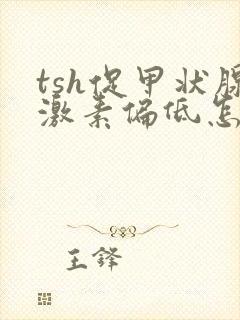 tsh促甲状腺
激素偏低怎
王锋